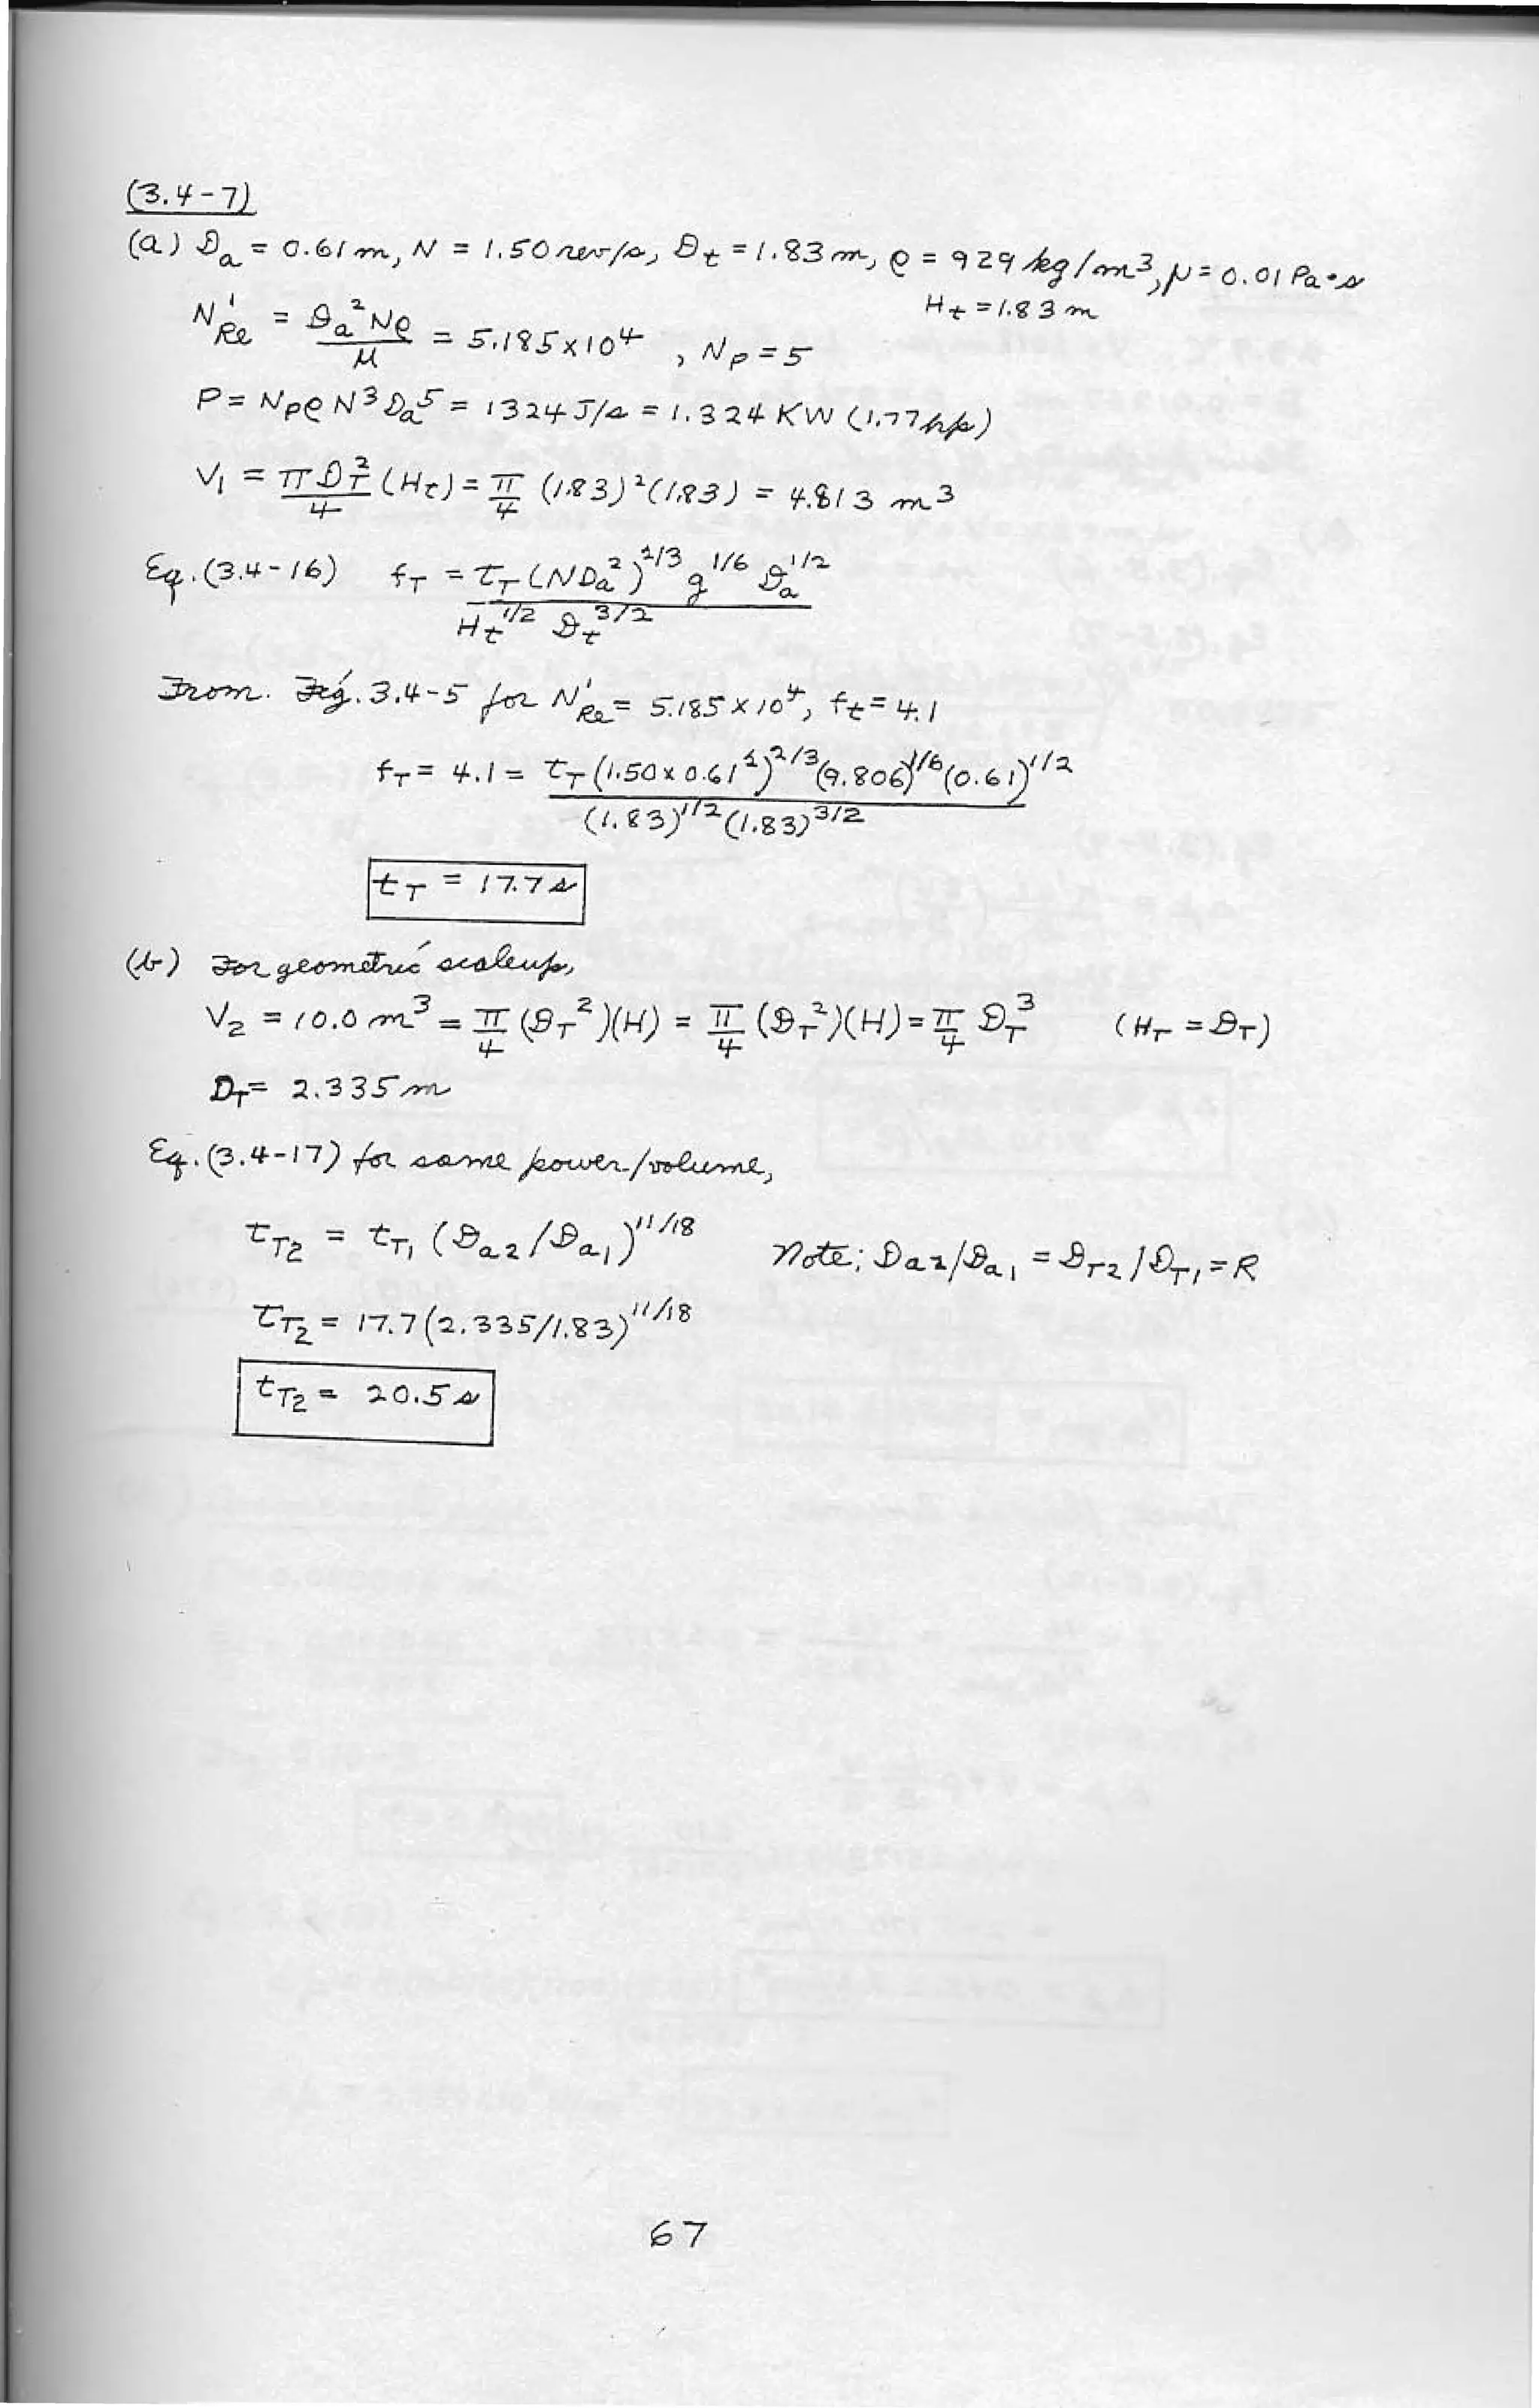 (3.4-7)
(a) Da = 0.61 m, N = 1.50 rev/s, Dt = 1.83 m, ρ = 929 kg/m³, μ = 0.01 Pa·s
Ht = 1.83 m
N'Re = Da²Nρ/μ = 5.185×10⁴, NP = 5
P = NPρN³Da⁵ = 1324 J/s = 1.324 KW (1.77 hp)
V1 = πDT²/4 (Ht) = π/4 (1.83)²(1.83) = 4.813 m³
Eq. (3.4-16) fT = tT(NDa²)^2/3 g^1/6 Da^1/2 / Ht^1/2 Dt^3/2
From. Fig. 3.4-5 for N'Re = 5.185×10⁴, ft = 4.1
fT = 4.1 = tT(1.50×0.61²)^2/3(9.806)^1/6(0.61)^1/2 / (1.83)^1/2(1.83)^3/2
tT = 17.7 s
(b) For geometric scaleup,
V2 = 10.0 m³ = π/4 (DT²)(H) = π/4 (DT²)(H) = π/4 DT³ (HT = DT)
DT = 2.335 m
Eq. (3.4-17) for same power/volume,
tT2 = tT1 (Da2/Da1)^11/18 Note: Da2/Da1 = DT2/DT1 = R
tT2 = 17.7(2.335/1.83)^11/18
tT2 = 20.5 s
67